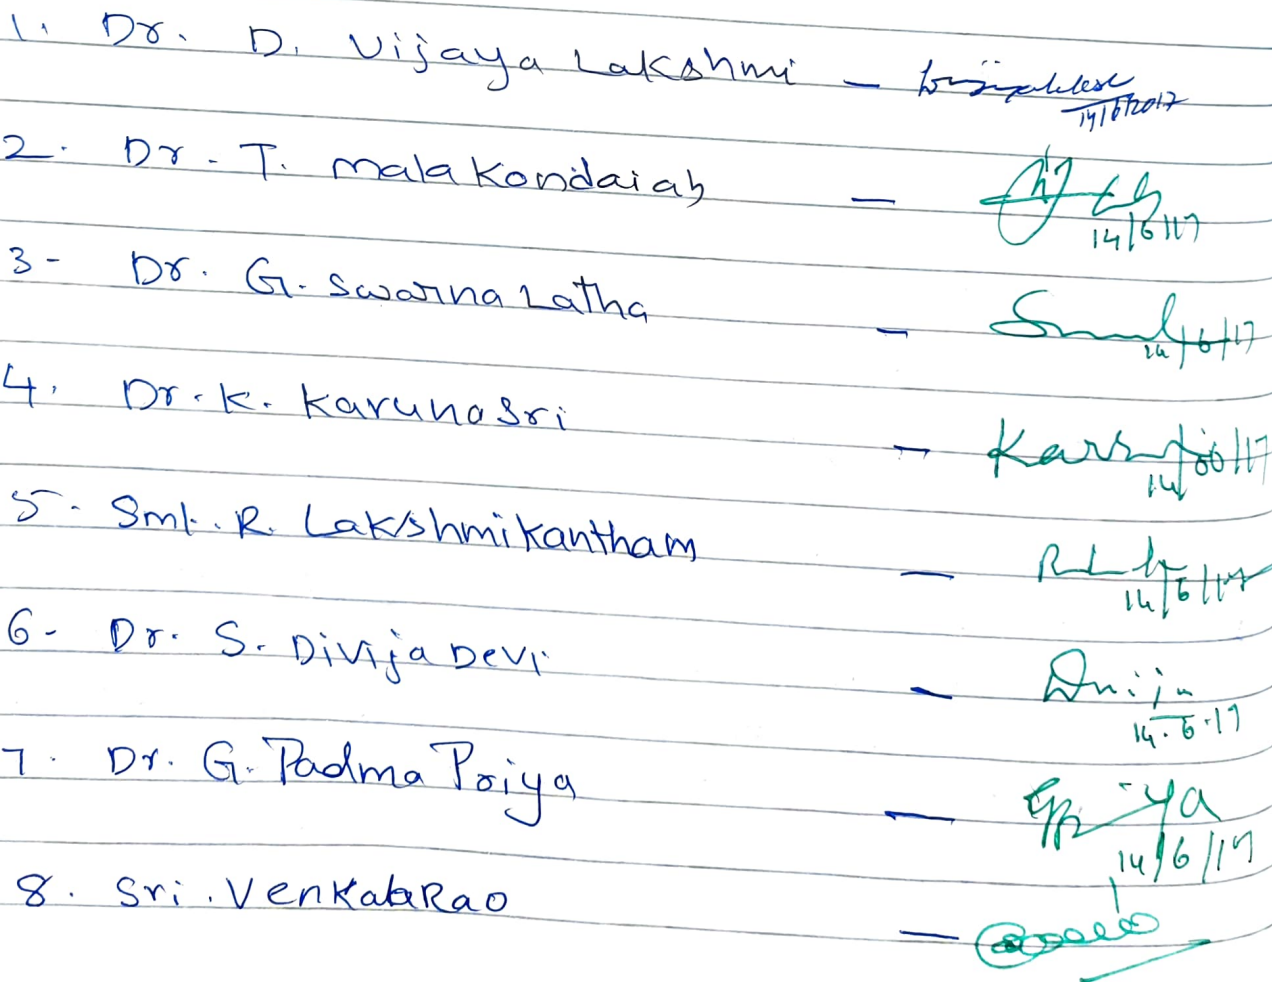 1. Dr. D. Vijaya Lakshmi - 14/6/2017
2. Dr. T. Mala Kondaiah - 14/6/17
3- Dr. G. Swarna Latha - 14/6/17
4. Dr. K. Karuna Sri - 14/06/17
5. Smt. R. Lakshmi Kantham - 14/6/17
6- Dr. S. Divija Devi - 14.6.17
7. Dr. G. Padma Priya - 14/6/17
8. Sri. Venkata Rao -